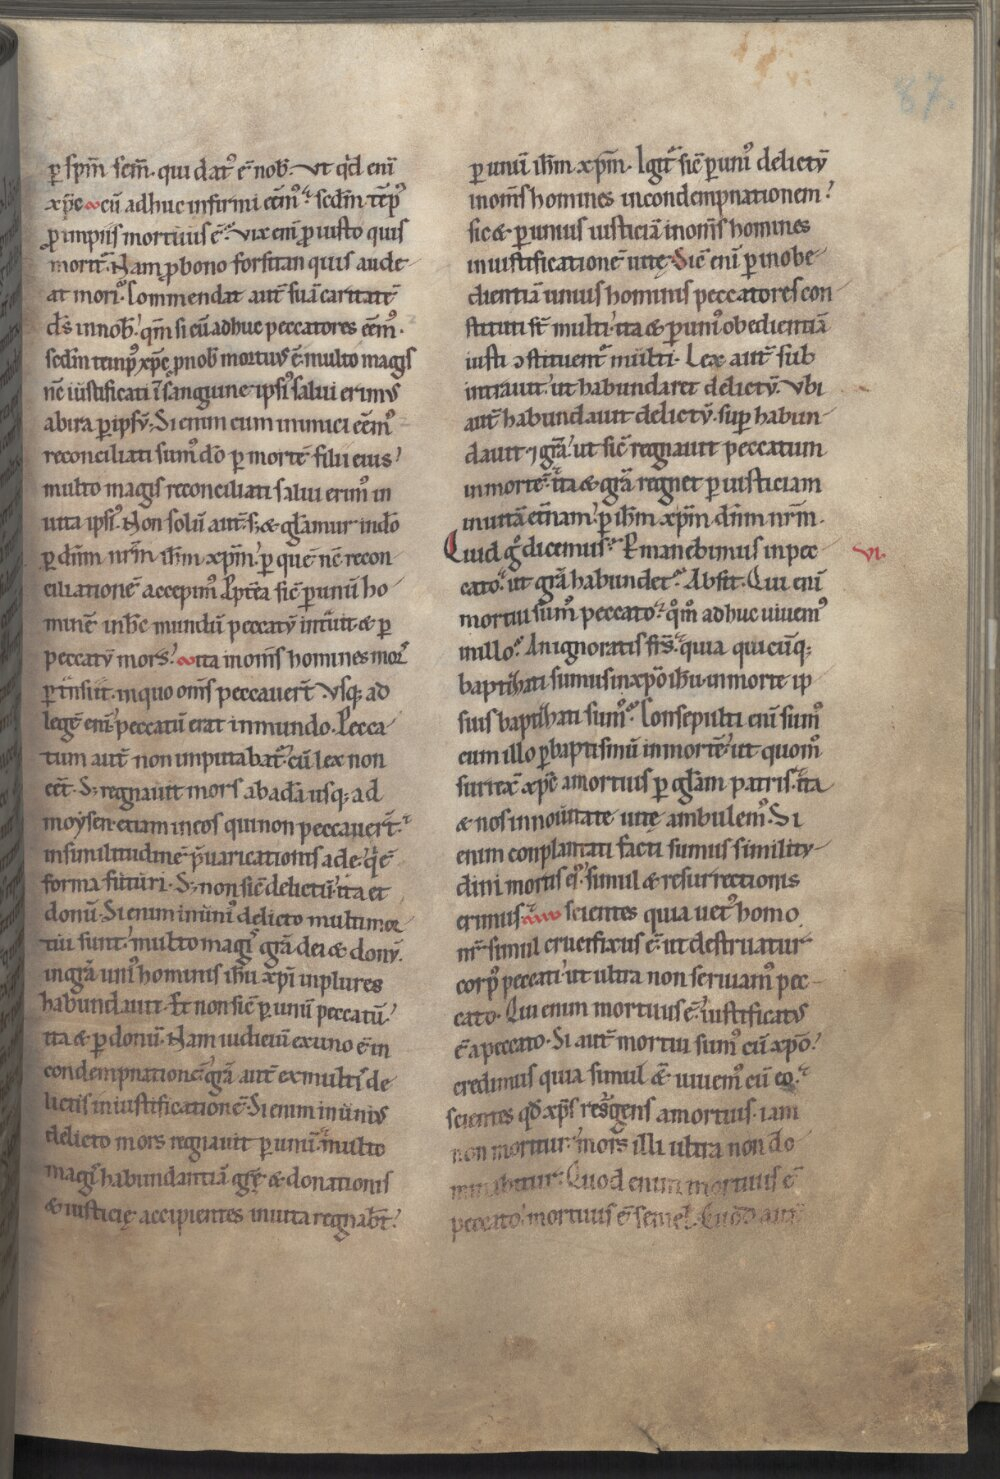 87.
ꝑ sp̄m sc̄m. qui dat᷒ ē nob̄. Vt qͥd enī
xp̄c cū adhuc infirmi eēm᷒ sc̄dm tēp᷒
ꝓ impiis mortuus ē. Vix enī ꝓ iusto quis
morit̄. Nam ꝓ bono forsitan quis aude
at mori. Commendat aut̄ suā caritatē
ds̄ in nob̄. qm̄ si cū adhuc peccatores eēm᷒.
sc̄dm temp᷒ xp̄c ꝓ nob̄ mortuꝰ ē. multo magis
nc̄ iustificati ī sanguine ipsi᷒ salui erimꝰ
ab ira ꝑ ipsū. Si enim cum inimici eēm᷒
reconciliati sum᷒ dō ꝑ mortē filii eius.
multo magis reconciliati salui erim᷒ in
uita ipsi᷒. Non solū aut̄. s; & gl̄amur in dō
ꝑ dn̄m nr̄m ih̄m xp̄m. ꝑ quē nc̄ recon
ciliationē accepim᷒. Ppt̄ea sic̄ ꝑ unū ho
minē in h̄c mundū peccatū intͣuit & ꝑ
peccatū mors. ita in om̄s homines mor
ꝑtn̄siit. in quo om̄s peccauer̄t. Vsq; ad
legē enī peccatū erat in mundo. Pecca
tum aut̄ non imputabat̄. cū lex non
eēt. S; regnauit mors ab adā usq; ad
moysen. etiam in eos qui non peccauer̄t.
in similitudinē p̄uaricationis ade. qͥ ē
forma futuri. S; non sic̄ delictū. ita et
donū. Si enim in uni᷒ delicto multi mor
tui sunt. multo magꝭ gr̄a dei & donū.
in gr̄a uni᷒ hominis ih̄u xp̄i in plures
habundauit. Et non sic̄ ꝑ unū peccatū.
ita & ꝑ donū. Nam iudiciū ex uno ē in
condempnationē. gr̄a aut̄ ex multis de
lictis in iustificationē. Si enim in unius
delicto mors regnauit ꝑ unū. multo
magꝭ habundantiā gr̄ę & donationis
& iusticię accipientes in uita regnab̄t.
ꝑ unū ih̄m xp̄m. Igit̄ sic̄ ꝑ uni᷒ delictū
in om̄s homines in condempnationem.
sic & ꝑ unius iusticiā in om̄s homines
in iustificationē uitę. Sic̄ enī ꝑ inobe
dientiā unius hominis peccatores con
stituti st̄ multi. ita & ꝑ uni᷒ obedientiā
iusti ↄstituent᷒ multi. Lex aut̄ sub
intrauit. ut habundaret delictū. Vbi
aut̄ habundauit delictū. suꝑ habun
dauit ⁊ gr̄a. ut sic̄ regnauit peccatum
in mortē. ita & gr̄a regnet ꝑ iusticiam
in uitā et̄nam. ꝑ ih̄m xp̄m dn̄m nr̄m.
Quid gͦ dicemus. Pmanebimus in pec
cato. ut gr̄a habundet. Absit. Qui enī
mortui sum᷒ peccato. qͦm᷒ adhuc uiuem᷒
in illo. An ignoratis fr̄s. quia quicūq;
baptizati sumus in xp̄o ih̄u. in morte ip
sius baptizati sum᷒. Consepulti enī sum᷒
cum illo ꝑ baptismū in mortē. ut quom᷒
surrex̄ xp̄c a mortuis ꝑ gl̄am patris. ita
& nos in nouitate uitę ambulem᷒. Si
enim conplantati facti sumus similitu
dini mortis ei᷒. simul & resurrectionis
erimus. scientes quia uet᷒ homo
nr̄ simul crucifixus ē. ut destruatur
corp᷒ peccati. ut ultra non seruiam᷒ pec
cato. Qui enim mortuus ē. iustificatꝰ
ē a peccato. Si aut̄ mortui sum᷒ cū xp̄o.
credimus quia simul & uiuem᷒ cū eo.
scientes qd̄ xp̄s resͬgens a mortuis. iam
non moritur. mors illi ultra non do
minabitur. Quod enim mortuus ē
peccato. mortuus ē semel. Quod aut̄
vi.